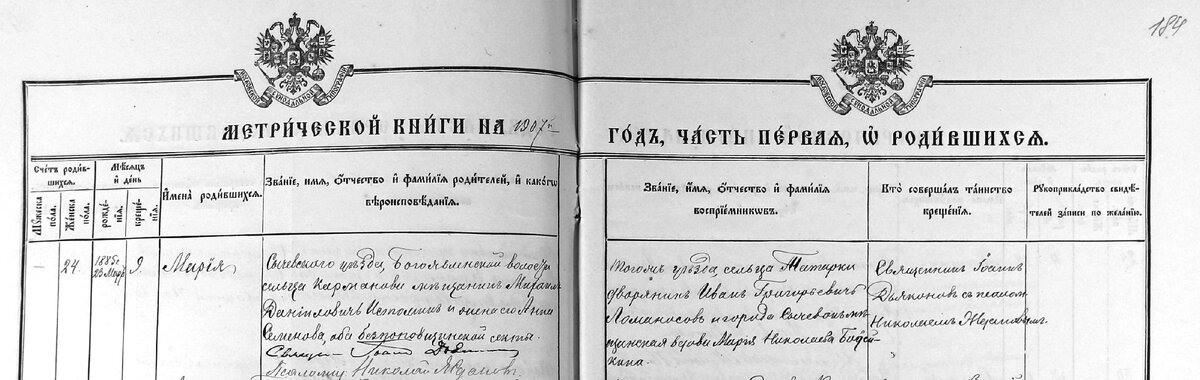 184
МОСКОВСКОЙ СѴНОДАЛЬНОЙ ТИПОГРАФІИ
МОСКОВСКОЙ СѴНОДАЛЬНОЙ ТИПОГРАФІИ
МЕТРИ́ЧЕСКОЙ КНИ́ГИ НА 1907й
ГО́ДЪ, ЧА́СТЬ ПЕ́РВАЯ, Ѽ РОДИ́ВШИХСѦ.
Сче́тъ роди́в-
шихсѧ.
Мꙋ́жеска по́ла.
Же́нска по́ла.
Мѣ́сѧцъ и҆ де́нь
рожде́нїѧ.
креще́нїѧ.
И҆мена̀ роди́вшихсѧ.
Зва́нїе, и҆́мѧ, ѻ҆́тчество и҆ фамѝлїѧ роди́телей, и҆ како́гѡ
вѣроисповѣ́данїѧ.
Зва́нїе, и҆́мѧ, ѻ҆́тчество и҆ фамѝлїѧ
воспрїе́мникѡвъ.
Кто̀ соверша́лъ та́инство
креще́нїѧ.
Рꙋкоприкла́дство свидѣ́-
телей за́писи по жела́нїю.
-
24.
1885 г.
23 Мар
9.
Марія
Сычевского уѣзда, Богоявленской волости
сельца Карманова мѣщанинъ Михаилъ
Даніиловичъ Истоминъ и жена его Анна
Семенова, оба безпоповщинской секты.
Священ Іоаннъ
Псаломщ Николай
тогожъ уѣзда сельца Татарки
дворянинъ Иванъ Григорьевичъ
Ломоносовъ и города Сычевокъ мѣ-
щанская вдова Марія Николаева
кина.
Священникъ Іоаннъ
Дьяконовъ съ псалом
Николаемъ